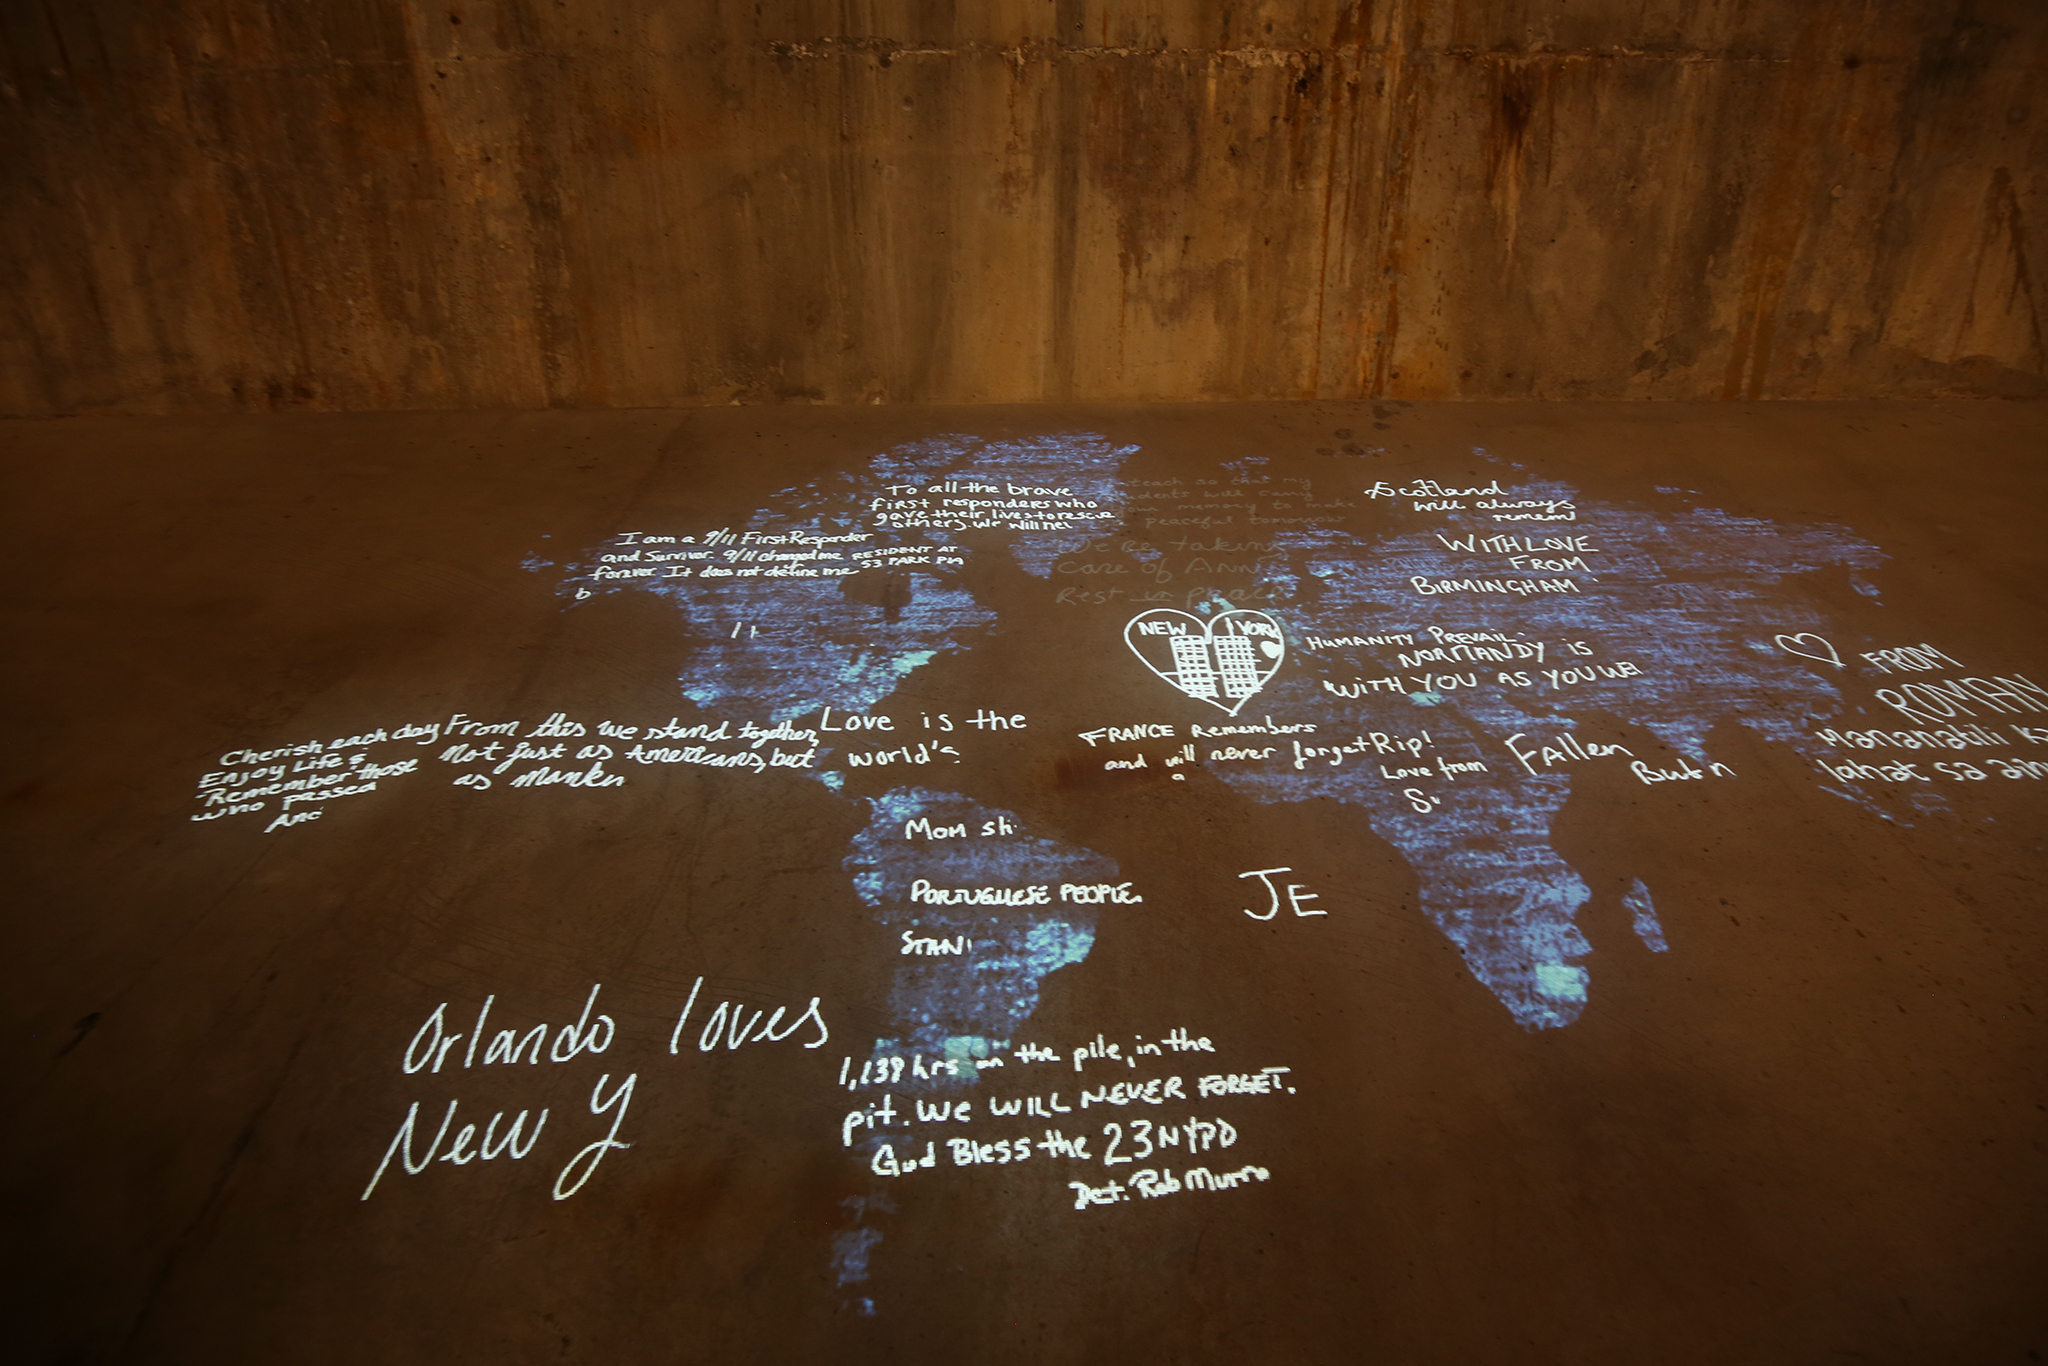 To all the brave
first responders who
gave their lives to rescue
others. We will nev
teach so that my
will carry
memory to make
peaceful tomorrow
We're taking
care of ANN
Rest in peace
Scotland
will always
remem
I am a 9/11 First Responder
and Survivor. 9/11 changed me
forever. It does not define me
b
RESIDENT AT
53 PARK Pla
WITH LOVE
FROM
BIRMINGHAM
NEW YORK
HUMANITY PREVAIL.
NORMANDY IS
WITH YOU AS YOU WE
♡ FROM
ROMAN
Mananatili
lahat sa
Cherish each day
Enjoy Life &
Remember those
who passed
And
From this we stand together,
Not just as Americans, but
as mankin
Love is the
world's
FRANCE Remembers
and will never forget
Rip!
Love from
S
FALLEN
But n
Mom sh
PORTUGUESE PEOPLE
STAN
JE
Orlando loves
New Y
hrs on the pile, in the
pit. We WILL NEVER FORGET.
God Bless the 23 NYPD
Det. Rob Murro